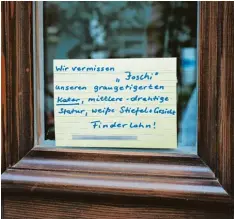 Wir vermissen
„Joschi“
unseren graugetigerten
Kater, mittlere - drahtige
Statur, weiße Stiefel + Gesicht
Finderlohn!